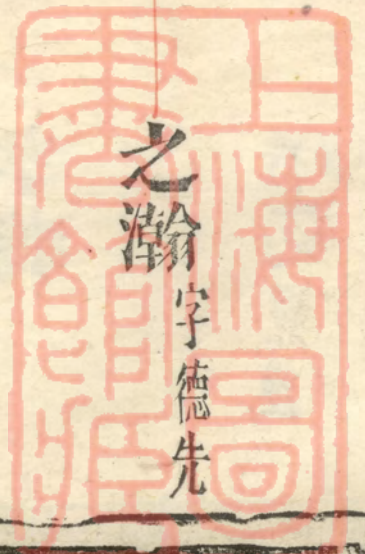 之瀚字德先
上海圖
書館藏